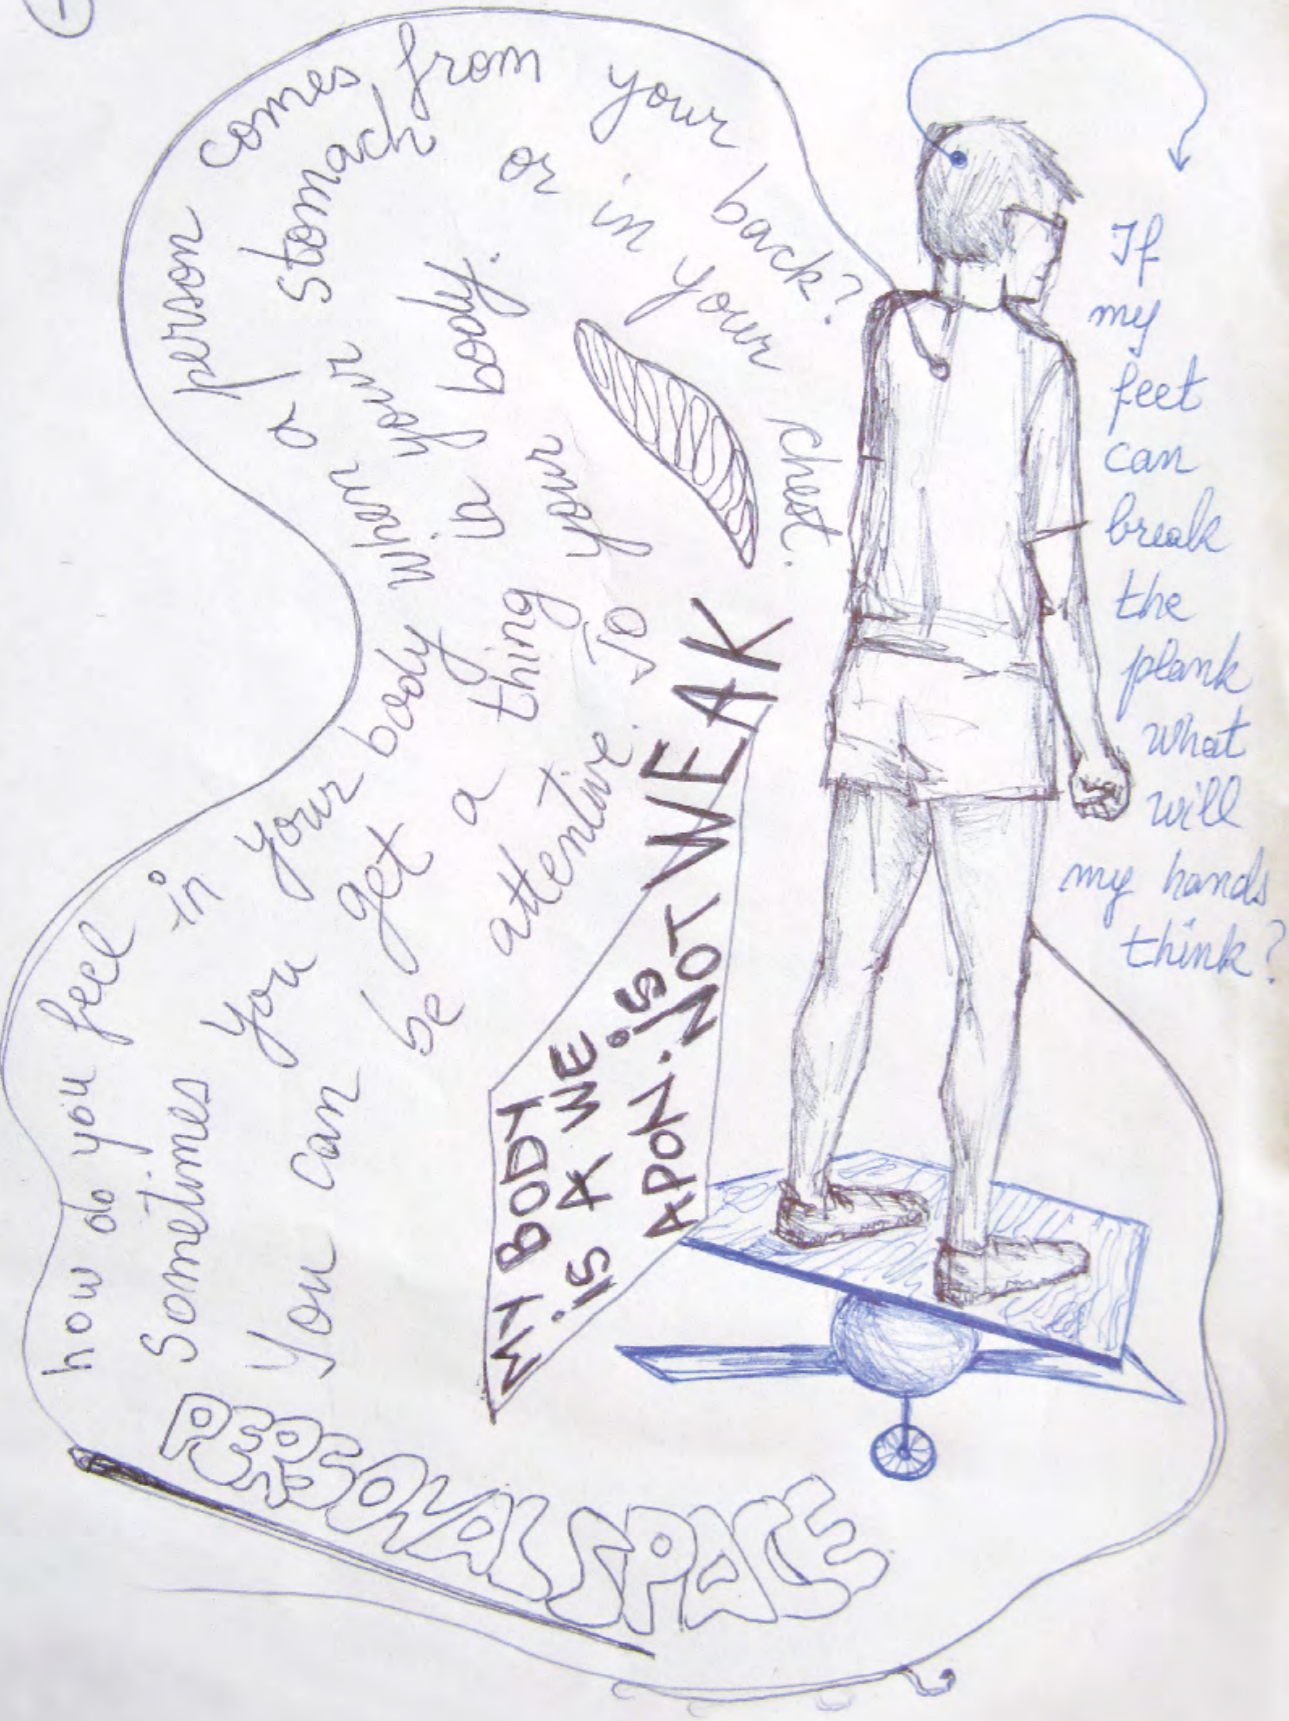 how do you feel in your body when a person comes from your back?
Sometimes you get a thing in your stomach or in your chest.
You can be attentive to your body.
MY BODY
is A WE
APON. is
NOT WEAK
PERSONAL SPACE
If
my
feet
can
break
the
plank
what
will
my hands
think?